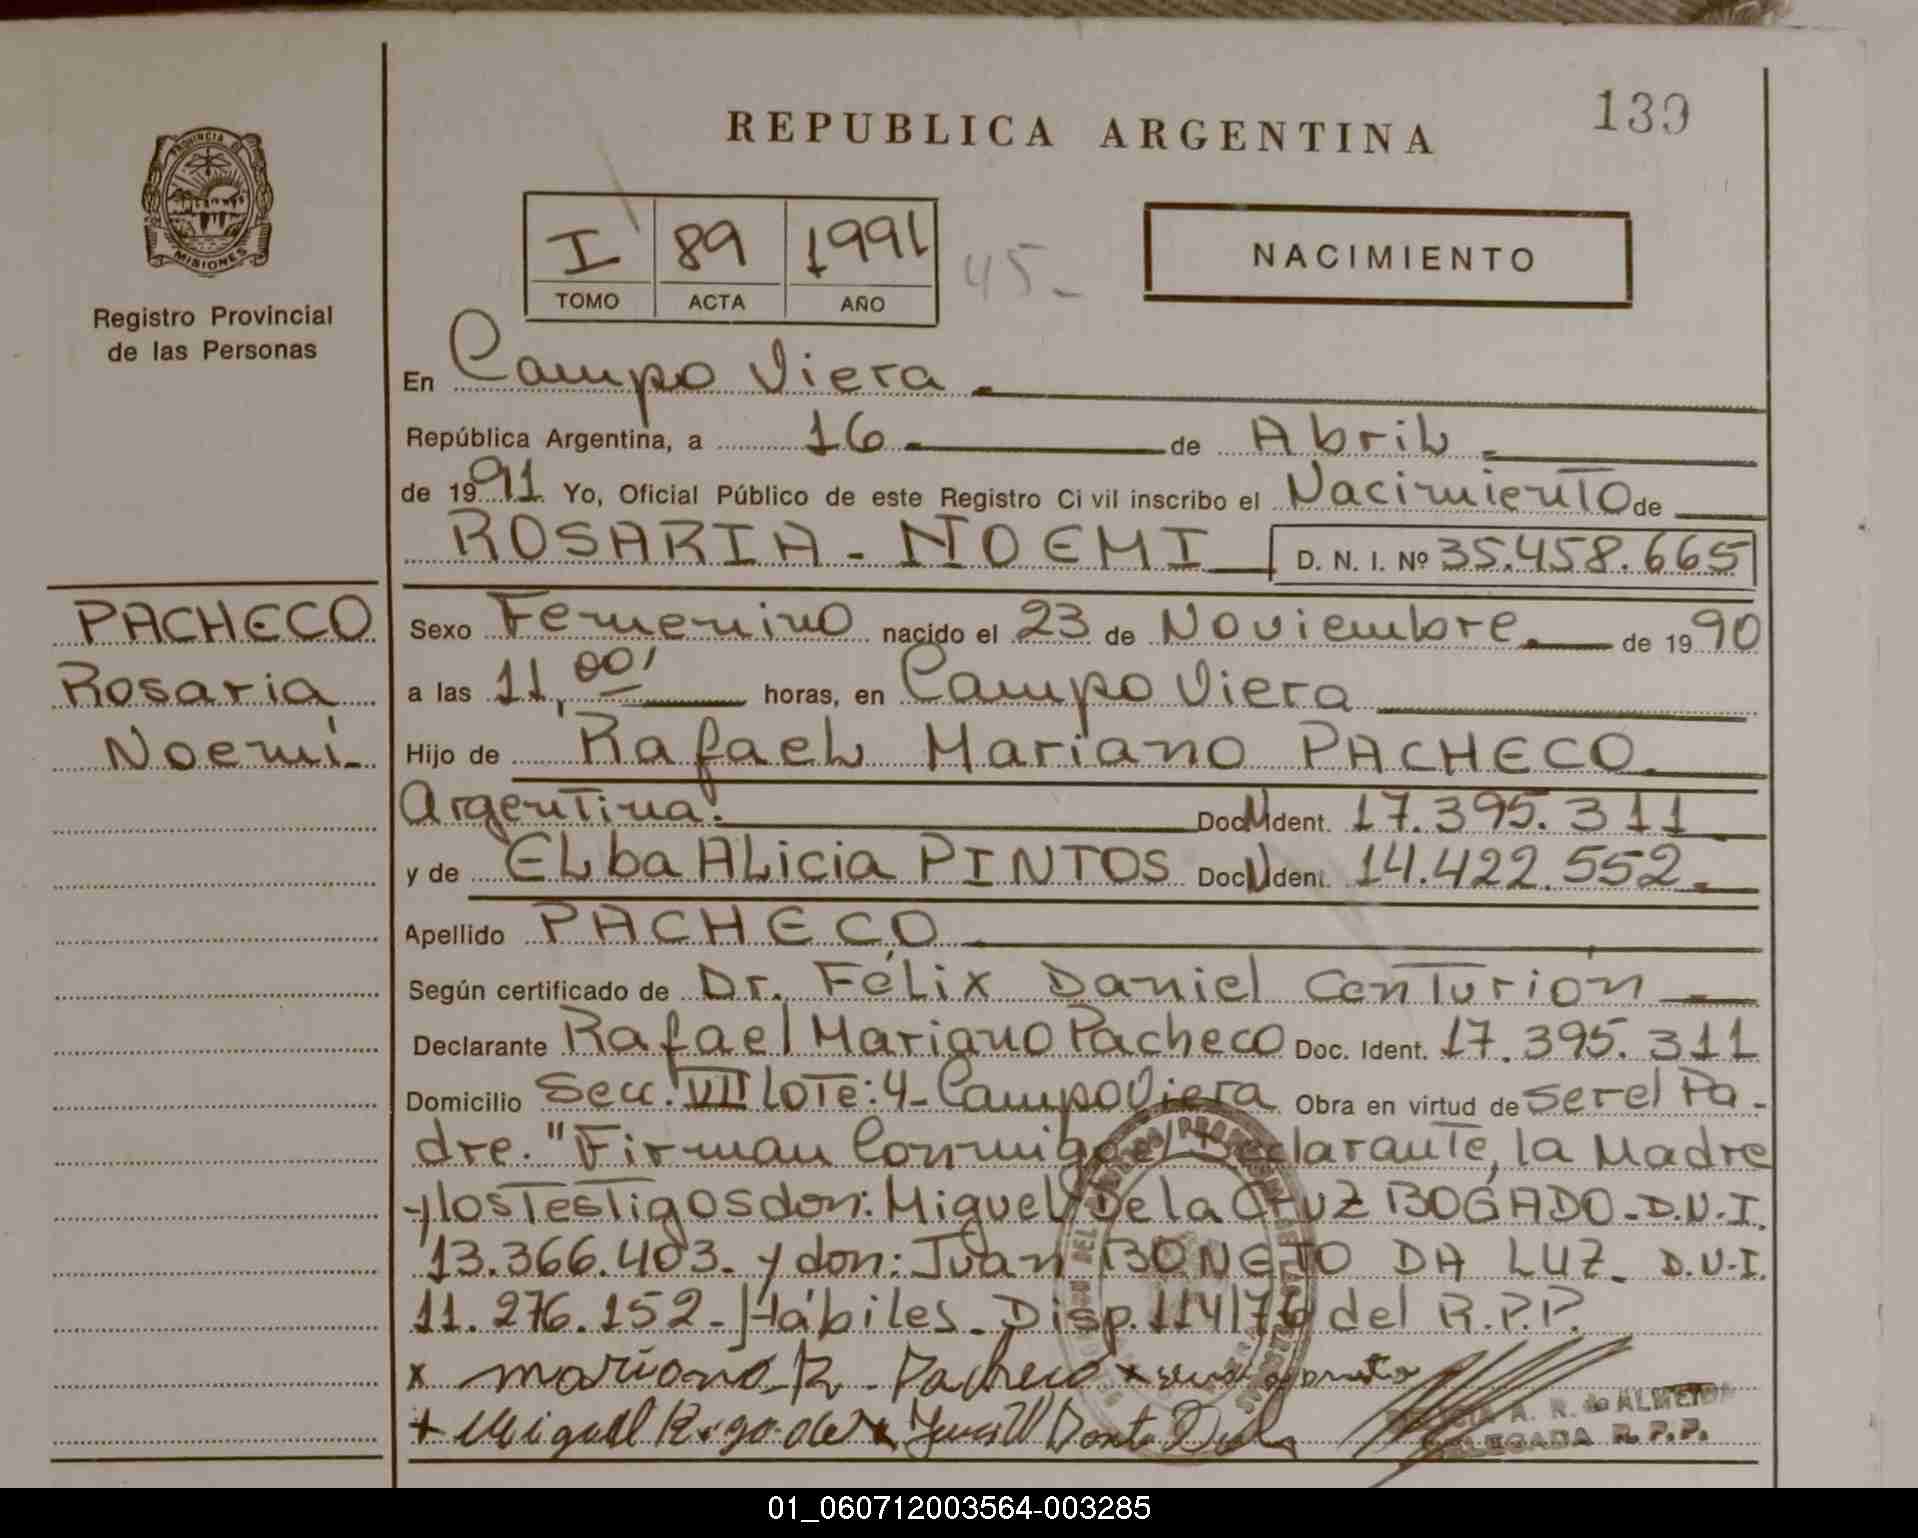 139
REPUBLICA ARGENTINA
PROVINCIA DE
MISIONES
Registro Provincial
de las Personas
I 89 1991 45-
TOMO ACTA AÑO
NACIMIENTO
En Campo Viera
República Argentina, a 16 de Abril
de 1991 Yo, Oficial Público de este Registro Civil inscribo el Nacimiento de
ROSARIA - NOEMI D. N. I. Nº 35.458.665
PACHECO
Rosaria
Noemí
Sexo Femenino nacido el 23 de Noviembre de 1990
a las 11,00' horas, en Campo Viera
Hijo de Rafael Mariano PACHECO
Argentina. Doc N Ident. 17.395.311
y de ELba ALicia PINTOS Doc N Ident. 14.422.552
Apellido PACHECO
Según certificado de Dr. Félix Daniel Centurión
Declarante Rafael Mariano Pacheco Doc. Ident. 17.395.311
Domicilio Secc. VII Lote: 4- Campo Viera Obra en virtud de ser el Pa-
dre. "Firman Conmigo el declarante, la Madre
y los testigos don: Miguel De la Cruz BOGADO - D.N.I.
13.366.403. y don: Juan BONETO DA LUZ - D.N.I.
11.276.152 - Hábiles. Disp. 114/76 del R.P.P.
x mariano R. Pacheco x
+ Miguel x
A. R. de ALMEIDA
DELEGADA R. P. P.
01_060712003564-003285